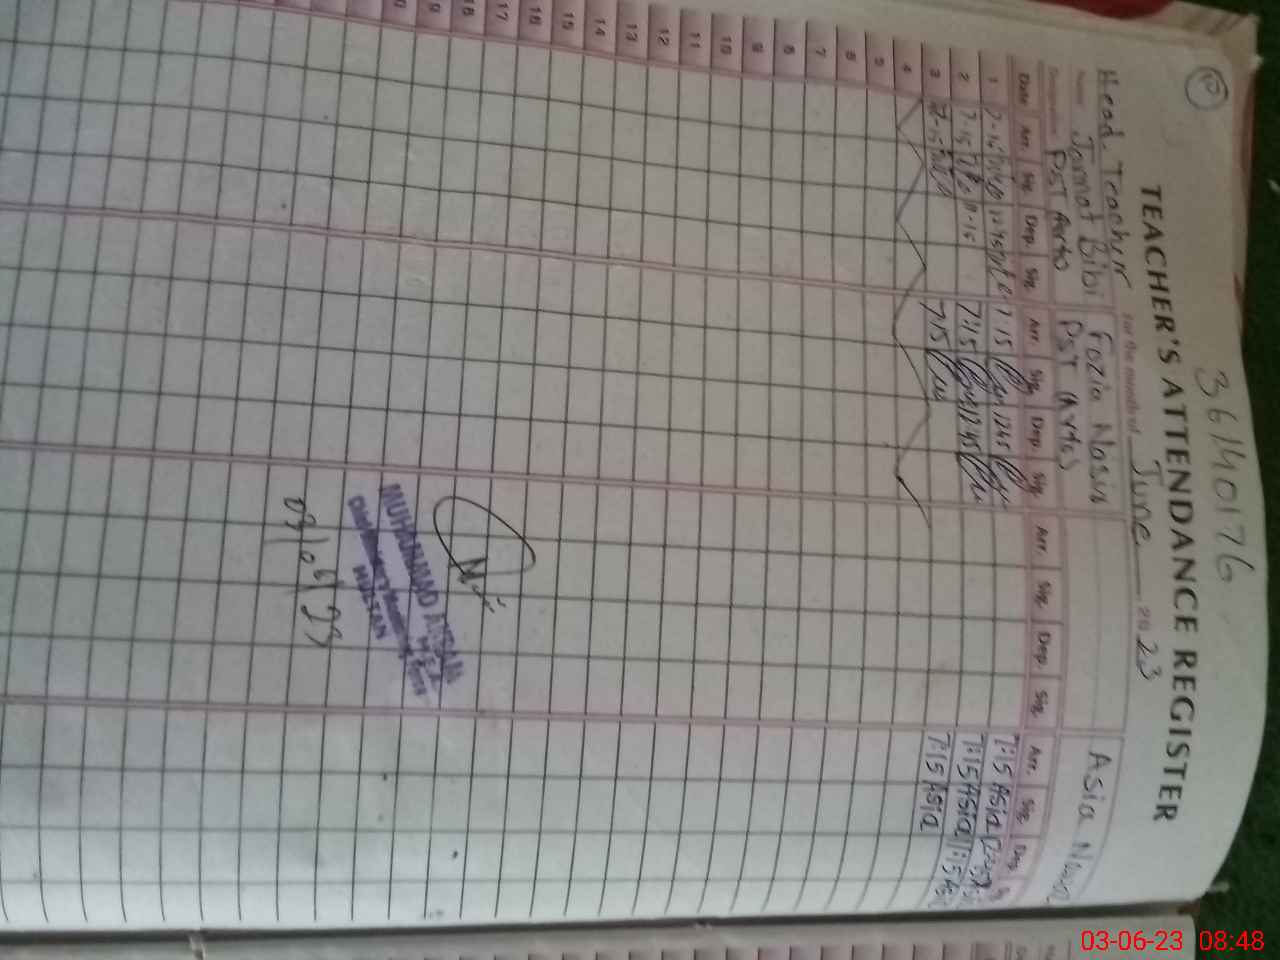 36140176
TEACHER'S ATTENDANCE REGISTER
For the month of June 2023
Head Teacher
Name Jannat Bibi Fozia Nasin Asia
Designation PST Arts PST (Arts)
Date Arr. Sig. Dep. Sig. Arr. Sig. Dep. Sig. Arr. Sig. Dep. Sig. Arr. Sig. Dep.
1 7-15 12-45 7 15 1245 7:15 Asia
2 7-15 11-15 7:15 12 45 7:15 Asia 11:15
3 7-15 7 15 7:15 Asia
4
5
6
7
8
9
10
11
12
13
14
15
16
17
18
19
20
MUHAMMAD
M.E.A
MULTAN
03/06/23
03-06-23 08:48